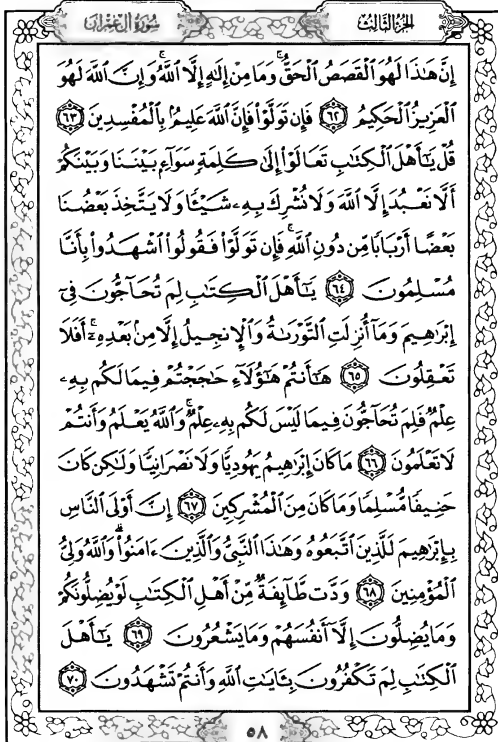 الجزء الثالث
سورة آل عمران
إِنَّ هَٰذَا لَهُوَ الْقَصَصُ الْحَقُّ ۚ وَمَا مِنْ إِلَٰهٍ إِلَّا اللَّهُ ۚ وَإِنَّ اللَّهَ لَهُوَ
الْعَزِيزُ الْحَكِيمُ ٦٢ فَإِن تَوَلَّوْا فَإِنَّ اللَّهَ عَلِيمٌ بِالْمُفْسِدِينَ ٦٣
قُلْ يَا أَهْلَ الْكِتَابِ تَعَالَوْا إِلَىٰ كَلِمَةٍ سَوَاءٍ بَيْنَنَا وَبَيْنَكُمْ
أَلَّا نَعْبُدَ إِلَّا اللَّهَ وَلَا نُشْرِكَ بِهِ شَيْئًا وَلَا يَتَّخِذَ بَعْضُنَا
بَعْضًا أَرْبَابًا مِّن دُونِ اللَّهِ ۚ فَإِن تَوَلَّوْا فَقُولُوا اشْهَدُوا بِأَنَّا
مُسْلِمُونَ ٦٤ يَا أَهْلَ الْكِتَابِ لِمَ تُحَاجُّونَ فِي
إِبْرَاهِيمَ وَمَا أُنزِلَتِ التَّوْرَاةُ وَالْإِنجِيلُ إِلَّا مِن بَعْدِهِ ۚ أَفَلَا
تَعْقِلُونَ ٦٥ هَا أَنتُمْ هَٰؤُلَاءِ حَاجَجْتُمْ فِيمَا لَكُم بِهِ
عِلْمٌ فَلِمَ تُحَاجُّونَ فِيمَا لَيْسَ لَكُم بِهِ عِلْمٌ ۚ وَاللَّهُ يَعْلَمُ وَأَنتُمْ
لَا تَعْلَمُونَ ٦٦ مَا كَانَ إِبْرَاهِيمُ يَهُودِيًّا وَلَا نَصْرَانِيًّا وَلَٰكِن كَانَ
حَنِيفًا مُّسْلِمًا وَمَا كَانَ مِنَ الْمُشْرِكِينَ ٦٧ إِنَّ أَوْلَى النَّاسِ
بِإِبْرَاهِيمَ لَلَّذِينَ اتَّبَعُوهُ وَهَٰذَا النَّبِيُّ وَالَّذِينَ آمَنُوا ۗ وَاللَّهُ وَلِيُّ
الْمُؤْمِنِينَ ٦٨ وَدَّت طَّائِفَةٌ مِّنْ أَهْلِ الْكِتَابِ لَوْ يُضِلُّونَكُمْ
وَمَا يُضِلُّونَ إِلَّا أَنفُسَهُمْ وَمَا يَشْعُرُونَ ٦٩ يَا أَهْلَ
الْكِتَابِ لِمَ تَكْفُرُونَ بِآيَاتِ اللَّهِ وَأَنتُمْ تَشْهَدُونَ ٧٠
٥٨